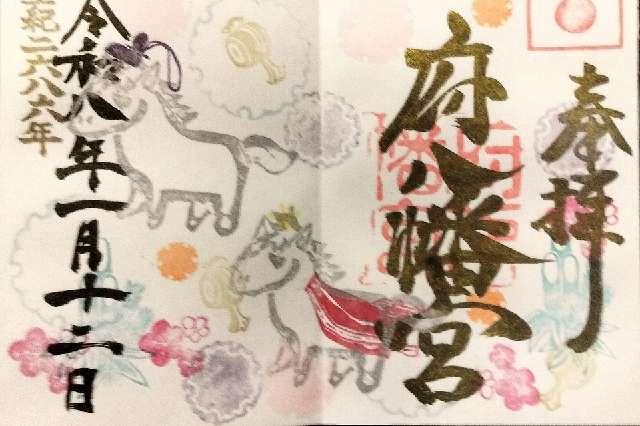 奉拝
府八幡宮
府八幡宮
令和八年一月十二日
紀二六八六年